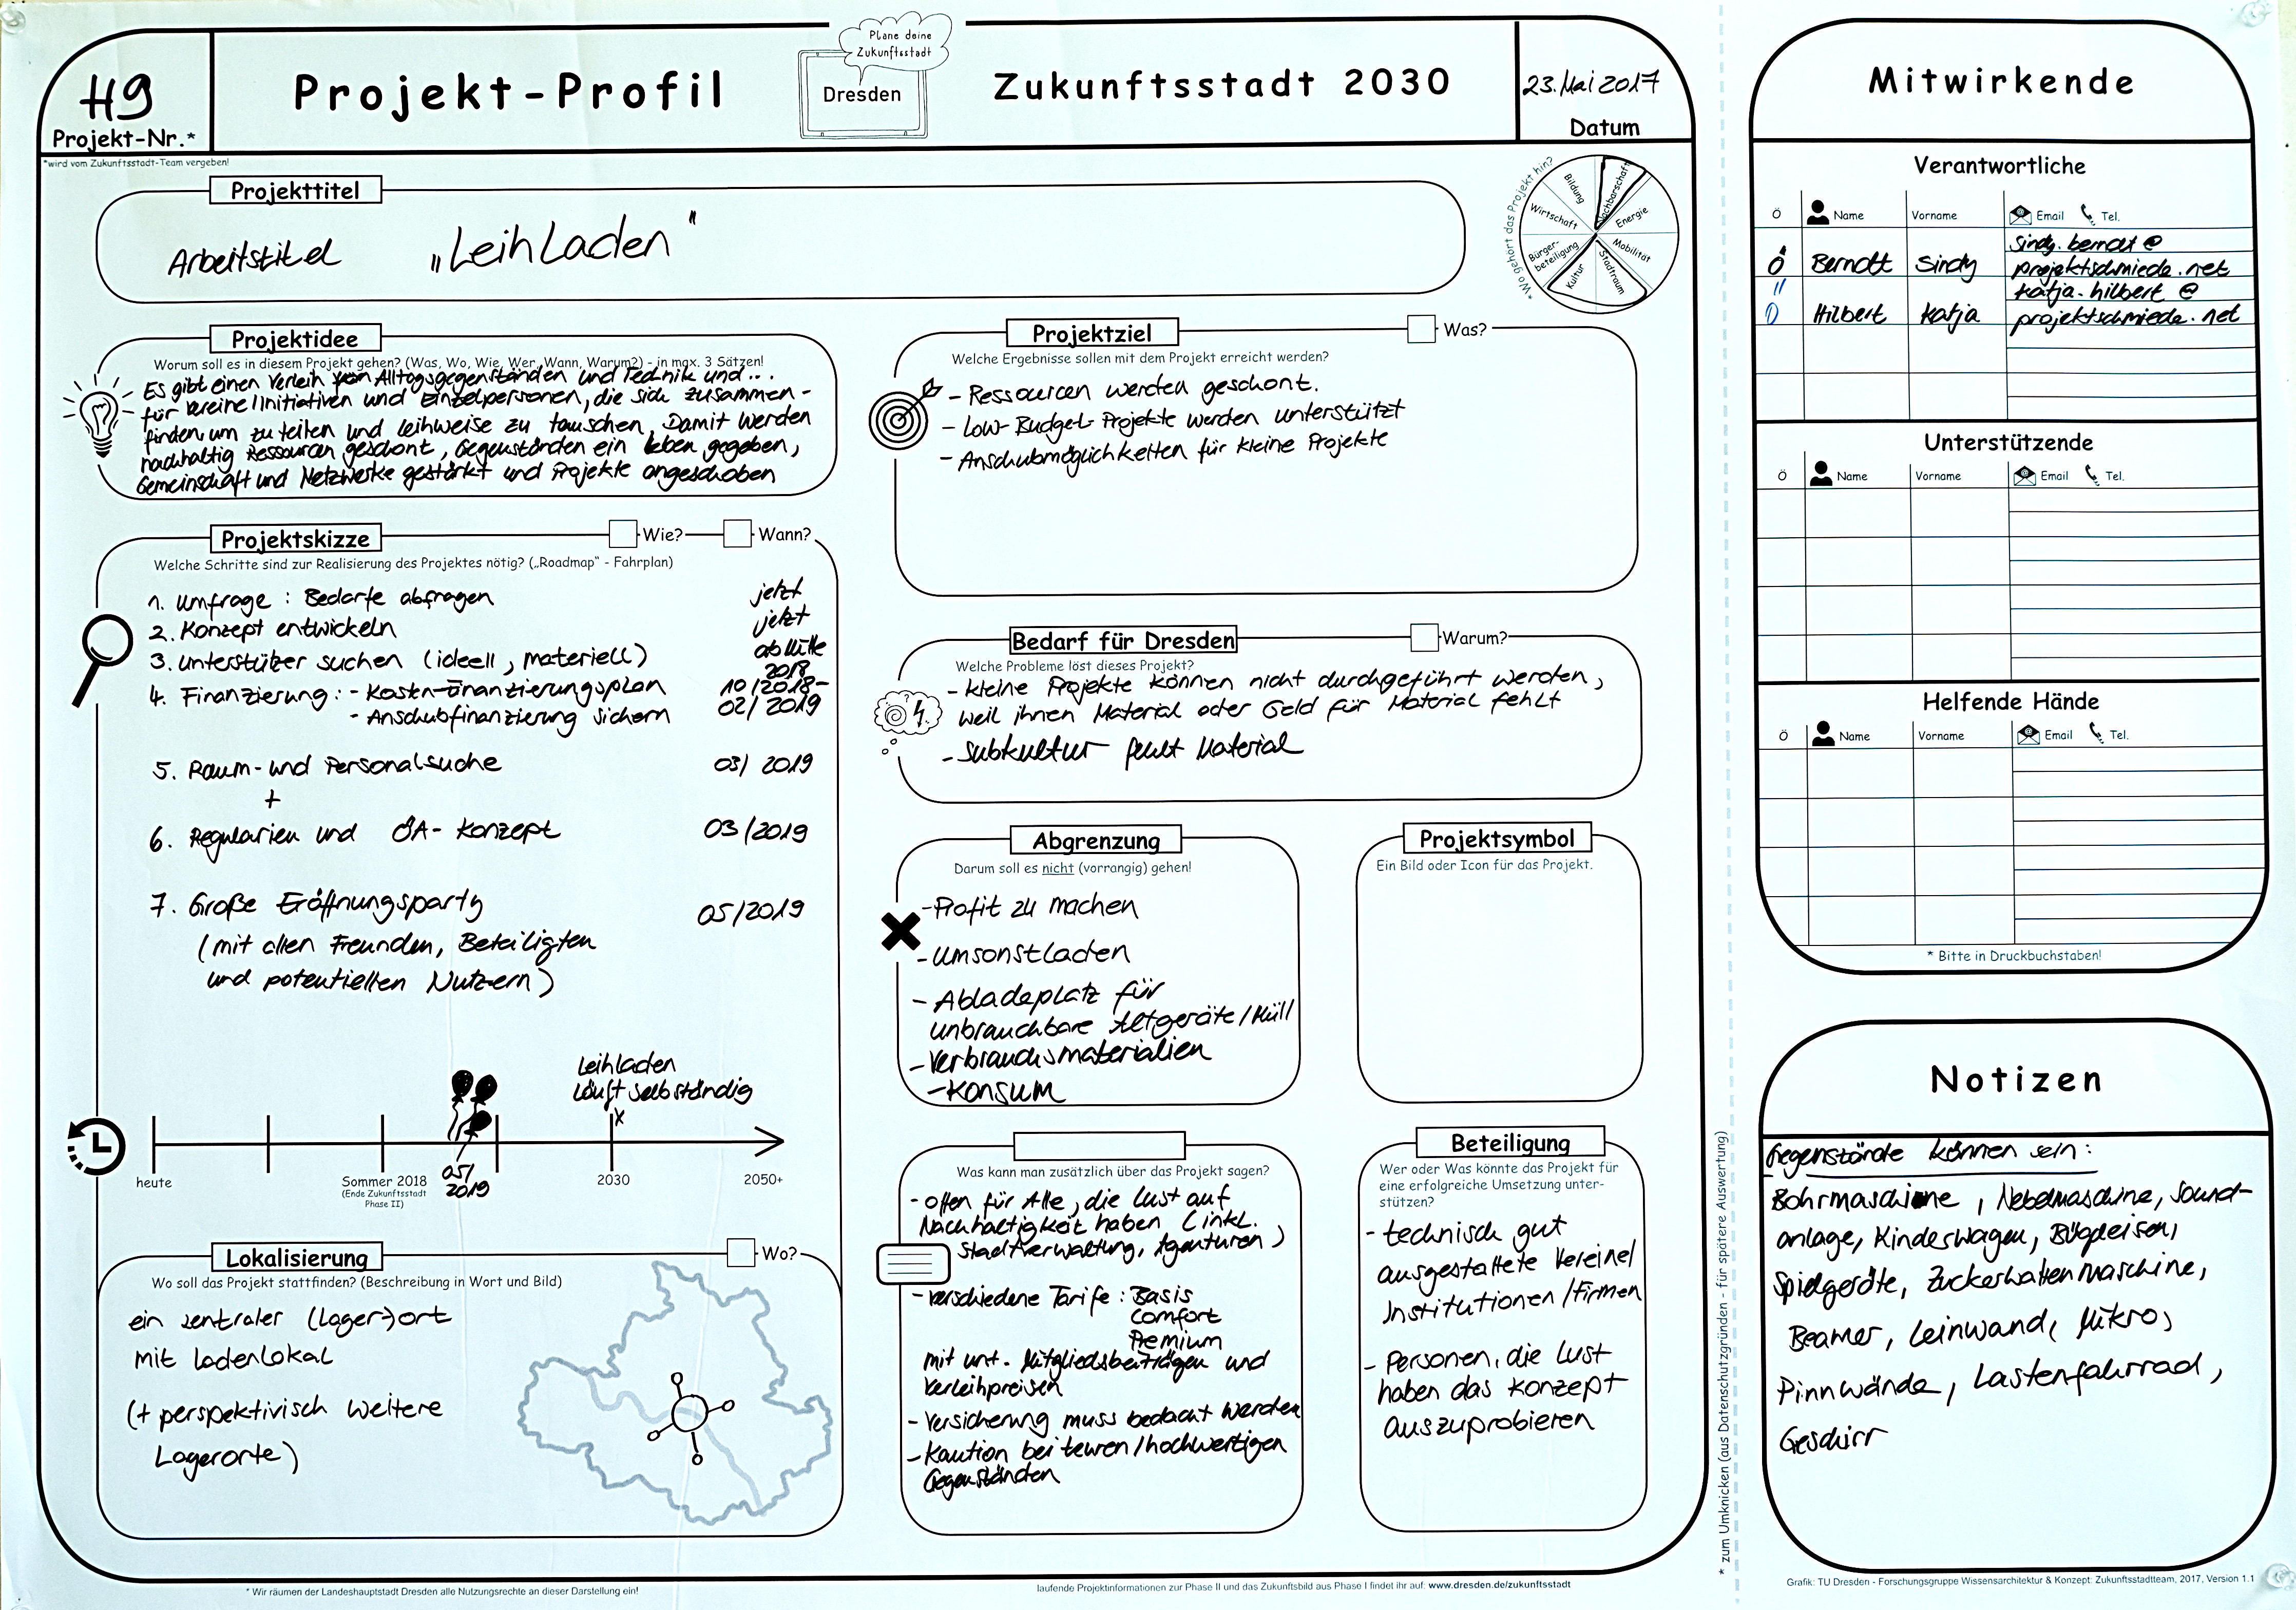 H9
Projekt-Nr.*
*wird vom Zukunftsstadt-Team vergeben!
Projekt-Profil
Plane deine
Zukunftsstadt
Dresden
Zukunftsstadt 2030
23. Mai 2017
Datum
Projekttitel
Arbeitstitel „Leihladen"
*Wo gehört das Projekt hin?
Bildung
Nachbarschaft
Energie
Mobilität
Stadtraum
Kultur
Bürger-
beteiligung
Wirtschaft
Projektidee
Worum soll es in diesem Projekt gehen? (Was, Wo, Wie, Wer, Wann, Warum?) - in max. 3 Sätzen!
Es gibt einen Verleih von Alltagsgegenständen und Technik und...
für Vereine/Initiativen und Einzelpersonen, die sich zusammen-
finden, um zu teilen und leihweise zu tauschen. Damit werden
nachhaltig Ressourcen geschont, Gegenständen ein Leben gegeben,
Gemeinschaft und Netzwerke gestärkt und Projekte angeschoben
Projektskizze
Wie?
Wann?
Welche Schritte sind zur Realisierung des Projektes nötig? („Roadmap“ - Fahrplan)
1. Umfrage : Bedarfe abfragen jetzt
2. Konzept entwickeln jetzt
3. Unterstützer suchen (ideell, materiell) ab Mitte
2018
4. Finanzierung: - Kosten-Finanzierungsplan 10/2018-
- Anschubfinanzierung sichern 02/2019
5. Raum- und Personalsuche 03/2019
+
6. Regularien und ÖA-Konzept 03/2019
7. Große Eröffnungsparty 05/2019
(mit allen Freunden, Beteiligten
und potentiellen Nutzern)
Leihladen
läuft selbständig
x
heute
Sommer 2018
(Ende Zukunftsstadt
Phase II)
05/
2019
2030
2050+
Lokalisierung
Wo?
Wo soll das Projekt stattfinden? (Beschreibung in Wort und Bild)
ein zentraler (Lager-)ort
mit Ladenlokal
(+ perspektivisch weitere
Lagerorte)
Projektziel
Was?
Welche Ergebnisse sollen mit dem Projekt erreicht werden?
- Ressourcen werden geschont.
- Low-Budget-Projekte werden unterstützt
- Anschubmöglichkeiten für kleine Projekte
Bedarf für Dresden
Warum?
Welche Probleme löst dieses Projekt?
- kleine Projekte können nicht durchgeführt werden,
weil ihnen Material oder Geld für Material fehlt
- Subkultur fehlt Material
Abgrenzung
Darum soll es nicht (vorrangig) gehen!
- Profit zu machen
- Umsonstladen
- Abladeplatz für
unbrauchbare Altgeräte/Müll
- Verbrauchsmaterialien
- Konsum
Projektsymbol
Ein Bild oder Icon für das Projekt.
Was kann man zusätzlich über das Projekt sagen?
- offen für Alle, die Lust auf
Nachhaltigkeit haben (inkl.
Stadtverwaltung, Agenturen)
- verschiedene Tarife: Basis
Comfort
Premium
mit unt. Mitgliedsbeiträgen und
Verleihpreisen
- Versicherung muss bedacht werden
- Kaution bei teuren/hochwertigen
Gegenständen
Beteiligung
Wer oder Was könnte das Projekt für
eine erfolgreiche Umsetzung unter-
stützen?
- technisch gut
ausgestattete Vereine/
Institutionen/Firmen
- Personen, die Lust
haben das Konzept
auszuprobieren
* Wir räumen der Landeshauptstadt Dresden alle Nutzungsrechte an dieser Darstellung ein!
laufende Projektinformationen zur Phase II und das Zukunftsbild aus Phase I findet ihr auf: www.dresden.de/zukunftsstadt
* zum Umknicken (aus Datenschutzgründen - für spätere Auswertung)
Mitwirkende
Verantwortliche
Ö Name Vorname Email Tel.
Ö Berndt Sindy sindy.berndt@
projektschmiede.net
Hilbert Katja katja.hilbert@
projektschmiede.net
Unterstützende
Ö Name Vorname Email Tel.
Helfende Hände
Ö Name Vorname Email Tel.
* Bitte in Druckbuchstaben!
Notizen
Gegenstände können sein:
Bohrmaschine, Nebelmaschine, Sound-
anlage, Kinderwagen, Bügeleisen,
Spielgeräte, Zuckerwattenmaschine,
Beamer, Leinwand, Mikro,
Pinnwände, Lastenfahrrad,
Geschirr
Grafik: TU Dresden - Forschungsgruppe Wissensarchitektur & Konzept: Zukunftsstadtteam, 2017, Version 1.1